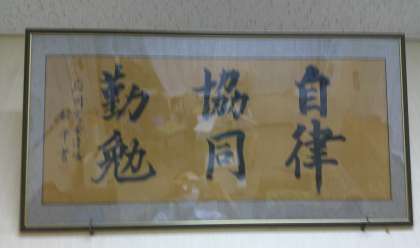 自律
協同
勤勉